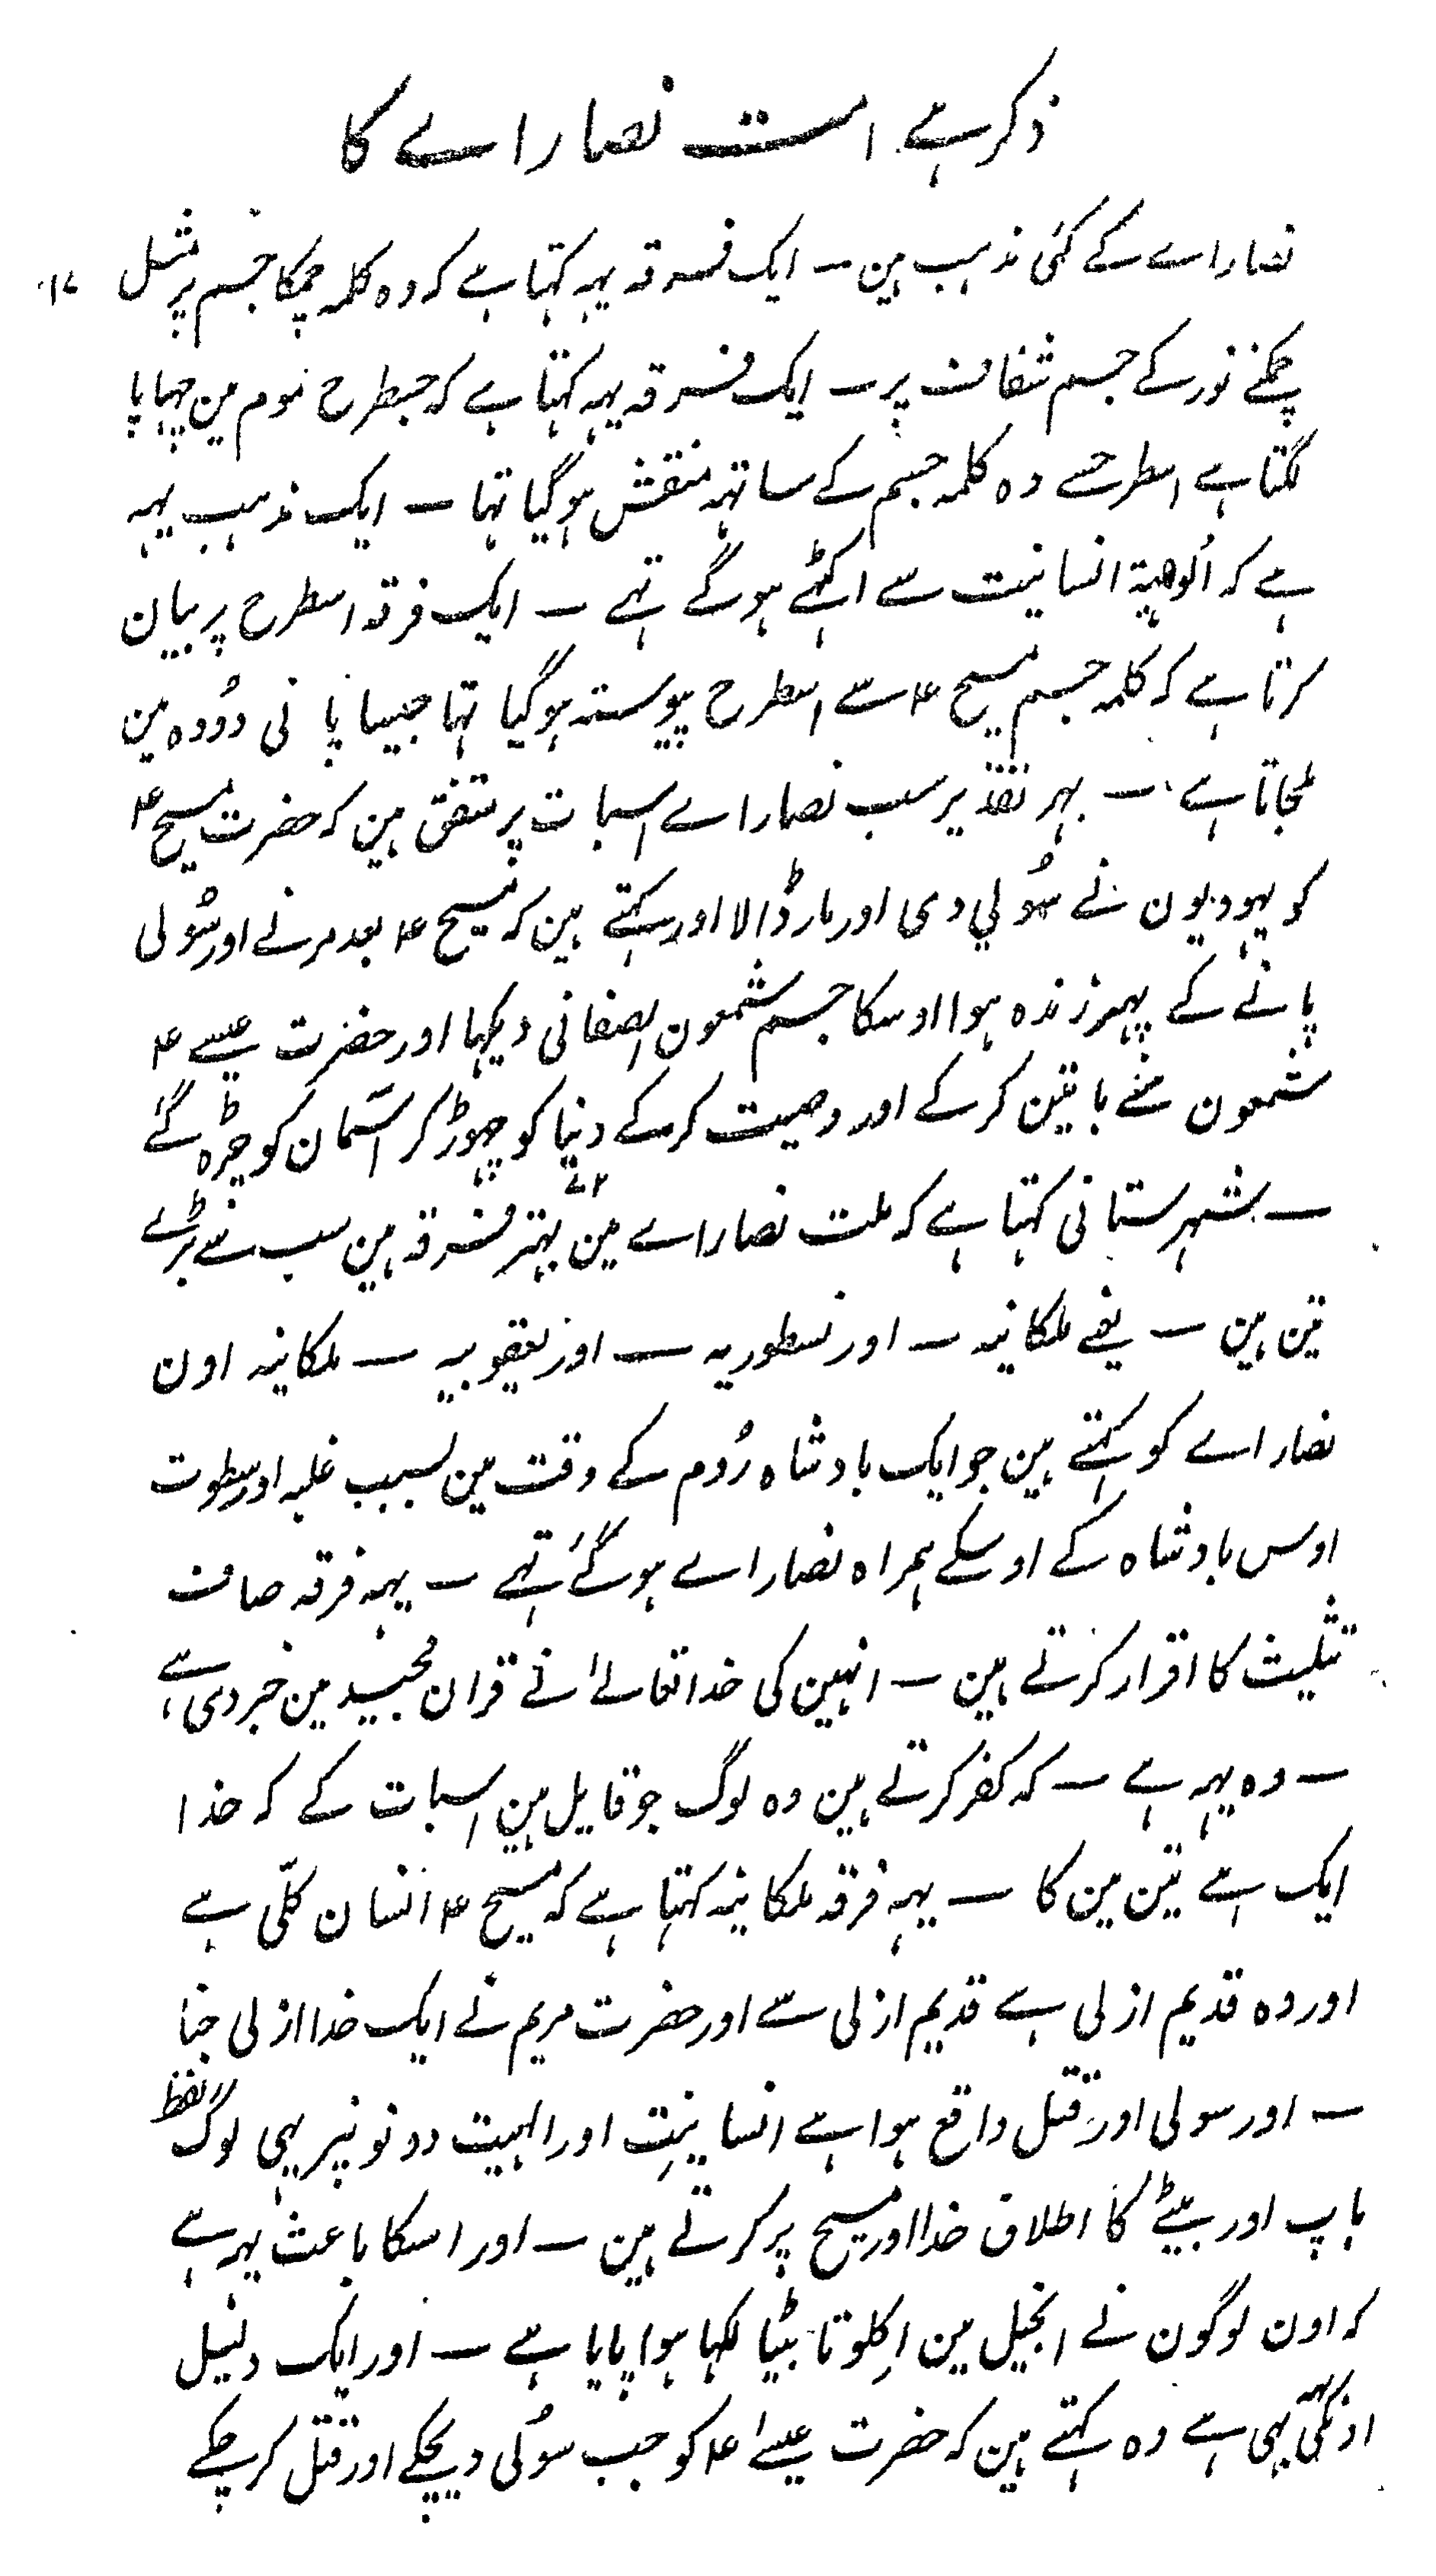 ذکر ہے امت نصاراے کا
نصاراے کے کئی مذہب ہین – ایک فرقہ یہہ کہتا ہے کہ وہ کلمہ چمکا جسم پر مثل
چمکنے نور کے جسم شفاف پر – ایک فرقہ یہہ کہتا ہے کہ جسطرح موم مین چہاپا
لگتا ہے اسطرحسے وہ کلمہ جسم کے ساتہہ منقش ہو گیا تہا – ایک مذہب یہہ
ہے کہ اُلوھیۃ انسانیت سے اکٹہے ہو گے تہے – ایک فرقہ اسطرح پر بیان
کرتا ہے کہ کلمہ جسم مسیح ۴ سے اسطرح پیوستہ ہو گیا تہا جیسا پانی دُودہ مین
ملجاتا ہے – بہر تقدیر سب نصاراے اسبات پر متفق ہین کہ حضرت مسیح ۴
کو یہودیون نے سُولي دی اور مار ڈالا اور کہتے ہین کہ مسیح ۴ بعد مرنے اور سُولی
پانے کے پہر زندہ ہوا اوسکا جسم شمعون الصفانی دیکہا اور حضرت عیسے ۴
شمعون سے باتین کر کے اور وصیت کر کے دنیا کو چہوڑ کر آسمان کو چڑہ گئے
– شہرستانی کہتا ہے کہ ملت نصاراے مین بہتر ۷۲ فرقہ ہین سب سے بڑے
تین ہین – یعنے ملکانیہ – اور نسطوریہ – اور یعقوبیہ – ملکانیہ اون
نصاراے کو کہتے ہین جو ایک بادشاہ رُوم کے وقت مین بسبب غلبہ اور سطوت
اوس بادشاہ کے اوسکے ہمراہ نصاراے ہو گئے تہے – یہہ فرقہ صاف
تثلیث کا اقرار کرتے ہین – انہین کی خدا تعالےٰ نے قران مجید مین خبر دی ہے
– وہ یہہ ہے – کہ کفر کرتے ہین وہ لوگ جو قایل ہین اسبات کے کہ خدا
ایک ہے تین مین کا – یہہ فرقہ ملکانیہ کہتا ہے کہ مسیح ۴ انسان کلّی ہے
اور وہ قدیم ازلی ہے قدیم ازلی سے اور حضرت مریم نے ایک خدا ازلی جنا
– اور سولی اور قتل واقع ہوا ہے انسانیتِ اور الہیت دونو نپر یہی لوگ لفظ
باپ اور بیٹے کا اطلاق خدا اور مسیح پر کرتے ہین – اور اسکا باعث یہہ ہے
کہ اون لوگون نے انجیل مین اِکلوتا بیٹا لکہا ہوا پایا ہے – اور ایک دلیل
اونکی یہی ہے وہ کہتے ہین کہ حضرت عیسےٰ ۴ کو جب سُولی دیچکے اور قتل کر چکے